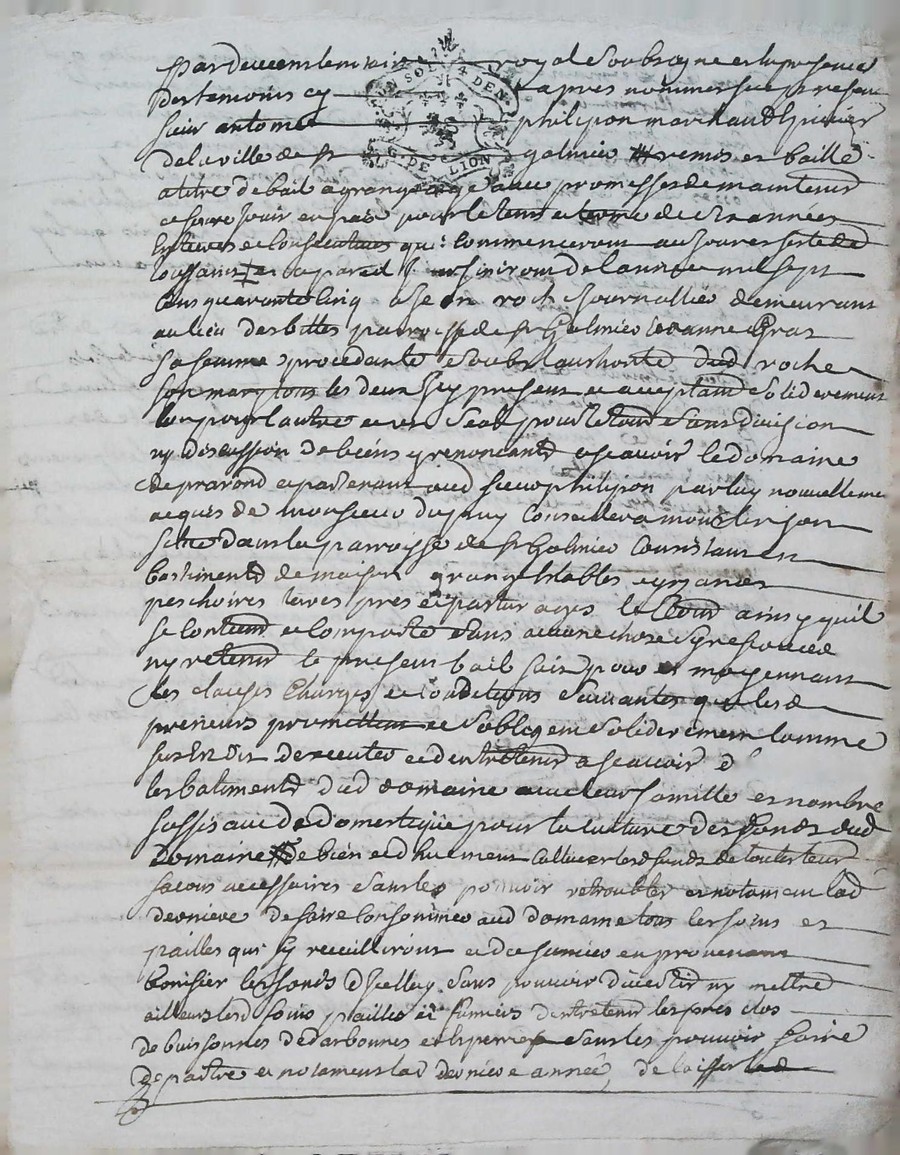 Pardevant le notaire royal soubsigne et en presence
des temoins cy apres nommes fut present
sieur antoine philipon marchand Epicier
de la ville de st galmier remis et baillé
a titre de bail a grangeage avec promesses de maintenir
et faire jouir en paix pour le tems et terme de années
Entieres et consecutives qui commenceront au jour et feste de
toussaints et a pareil finiront de l'annee mil sept
Cens quarante cinq a roch journallier demeurant
au lieu des billes parroisse de st Galmier et anne Gras
sa femme procedante soubs l'authorité dud roche
son mary tous les deux icy presens et acceptant solidairement
l'un pour l'autre et un seul pour le tout sans division
ny discussion de biens y renoncants a scavoir le domaine
de prarond apartenant aud sieur philipon par luy nouvellement
acquis de monsieur dupuy Conseiller a montbrison
situé dans la parroisse de st Galmier Consistant en
bastiments de maison grange Estables
peschoires terres pres et pasturages le tout ainsy qu'il
se contient et comporte sans aucune chose y reserver
ny retenir le present bail fait pour et moyennant
les clauses Charges et conditions suivantes que lesd
preneurs promettent et s'obligent solidairement comme
sus Est dit d'executer et d'entretenir a scavoir d'
les batiments dud domaine avec leur famille et nombre
suffisant de domestiques pour la culture des fonds dud
Domaine de bien et duement cultiver lesd fonds de toutes leurs
facons necessaires sans les pouvoir retroubler et notament lad
derniere de faire consommer aud domaine tous les foins et
pailles qui s'y recueilliront et de fumier en provenant
bonifier les fonds d'Icelluy sans pouvoir divertir ny mettre
ailleurs lesd foins pailles et fumiers d'entretenir les pres clos
de buissonnes et Esperrés sans les pouvoir faire
depaitre et notament lad derniere année de laisser lad
UN SOL 4 DEN
G. DE LION